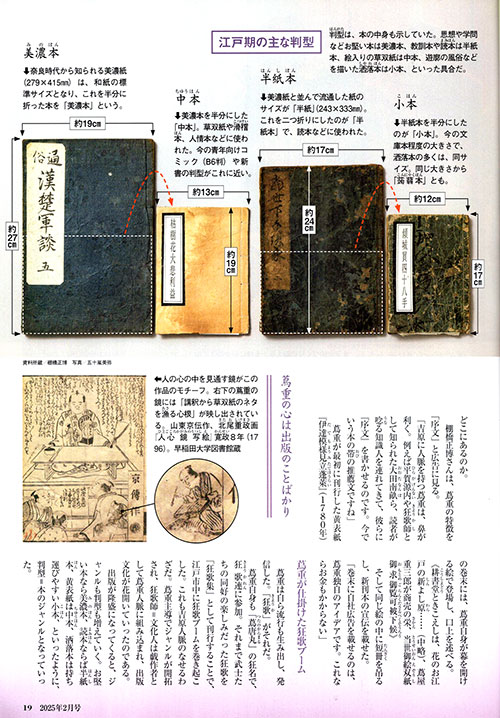 江戸期の主な判型
判型は、本の中身も示していた。思想や学問
などお堅い本は美濃本、教訓本や読本は半紙
本、絵入りの草双紙は中本、遊廓の風俗など
を描いた洒落本は小本、といった具合だ。
美濃本
⬇奈良時代から知られる美濃紙
(279×415㎜)は、和紙の標
準サイズとなり、これを半分に
折った本を「美濃本」という。
約19㎝
約27㎝
通俗
漢楚軍談
五
中本
⬇美濃本を半分にした
「中本」。草双紙や滑稽
本、人情本などに使わ
れた。今の青年向けコ
ミック(B6判)や新
書の判型がこれに近い。
約13㎝
約19㎝
枯樹花大悲利益
半紙本
⬇美濃紙と並んで流通した紙の
サイズが「半紙」(243×333㎜)。
これを二つ折りにしたのが「半
紙本」で、読本などに使われた。
約17㎝
約24㎝
小本
⬇半紙本を半分にした
のが「小本」。今の文
庫本程度の大きさで、
洒落本の多くは、同サ
イズ。同じ大きさから
「蒟蒻本」とも。
約12㎝
約17㎝
傾城買四十八手
資料所蔵・棚橋正博 写真・五十嵐美弥
⬅人の心の中を見通す鏡がこの
作品のモチーフ。右下の蔦重の
鏡には「講釈から草双紙のネタ
を漁る心模」が映し出されてい
る。山東京伝作、北尾重政画
『人心鏡写絵』寛政8年(17
96)。早稲田大学図書館蔵
京傳作
蔦重の心は出版のことばかり
どこにあるのか。
棚橋正博さんは、蔦重の特徴を
「序文」と「広告」に見る。
「吉原に人脈を持つ蔦重は、鼻が
利く。例えば平賀源内や、狂歌師と
して知られた大田南畝ら、読者が
唸る知識人を連れてきて、彼らに
『序文』を書かせるのです。今で
いう本の帯の推薦文ですね」
蔦重が最初に刊行した黄表紙
『伊達模様見立蓬莱』(1780年)
の巻末には、蔦重自身が幕を開け
る絵で登場し、口上を述べる。
〈耕書堂とききこえしは、花のお江
戸の新よし原……(中略)、蔦屋
重三郎が商売の名、当世御絵双紙
御求御覧可被下候〉
そして同じ絵の中に短冊を吊る
し、新刊本の宣伝を載せた。
「巻末に自社広告を載せるのは、
蔦重独自のアイデアです。これな
らお金もかからない」
蔦重が仕掛けた狂歌ブーム
蔦重は自ら流行も生み出し、発
信した。「狂歌」がそれだ。
蔦重自身、「蔦唐丸」の狂名で、
狂歌連に参加。それまで武士た
ちの同好の楽しみだった狂歌を
「狂歌集」として刊行することで、
江戸市中に狂歌ブームを巻き起こ
した。これも吉原人脈のなせるわ
ざだ。蔦重主導でジャンルが開拓
され、狂歌師=文化人は戯作者と
して蔦重人脈に組み込まれ、出版
文化が花開いていったのである。
出版が隆盛になってくると、ジ
ャンルも判型も増えていく。お堅
い本なら美濃本、読本ならば半紙
本、黄表紙は中本、洒落本は持ち
運びやすい小本、といったように、
判型=本のジャンルとなっていっ
た。
19 2025年2月号